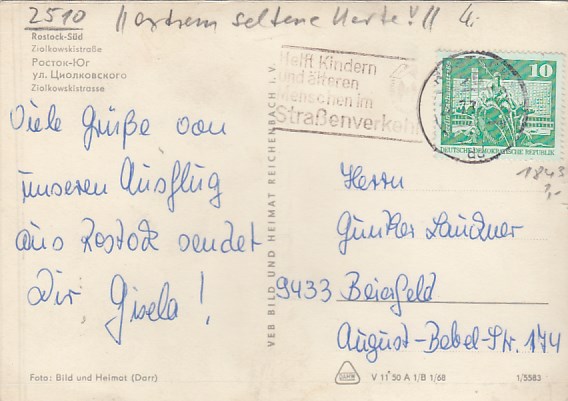 2510 //extrem seltene Karte!// 4,-
Rostock-Süd
Ziolkowskistraße
Росток-Юг
ул. Циолковского
Ziolkowskistrasse
Helft Kindern
und älteren
Menschen im
Straßenverkehr
10
DEUTSCHE DEMOKRATISCHE REPUBLIK
1843
Viele Grüße von
unseren Ausflug
aus Rostock sendet
Dir, Gisela!
VEB BILD UND HEIMAT REICHENBACH I. V.
Herrn
Günter
9433 Beierfeld
August-Bebel-Str. 174
Foto: Bild und Heimat (Darr)
V 11 50 A 1/B 1/68
1/5583